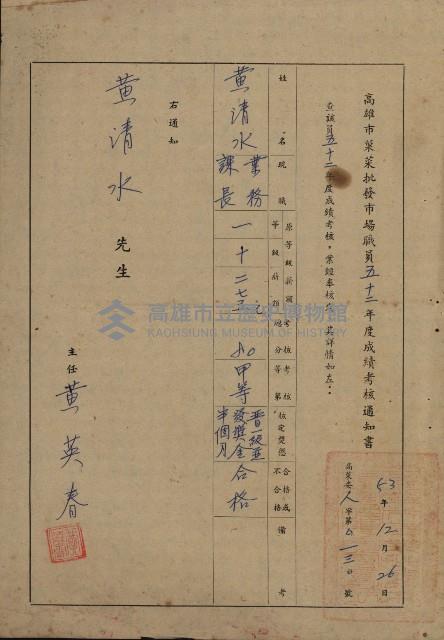 高雄市菓菜批發市場職員五十二年度成績考核通知書
53年12月26日
查該員五十二年度成績考核，業經奉核，其詳情如左：
姓名
現職
原等級薪額
等級
薪額
考核總分
考核等第
核定獎懲
合格或不合格
備考
黃清水
業務課長
一
十
二七〇元
80
甲等
晉一級並發獎金半個月
合格
右通知
黃清水 先生
主任 黃英春
高雄市立歷史博物館
KAOHSIUNG MUSEUM OF HISTORY